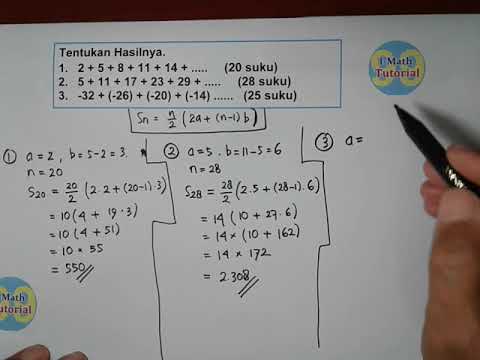 Tentukan Hasilnya.
1. 2 + 5 + 8 + 11 + 14 + ..... (20 suku)
2. 5 + 11 + 17 + 23 + 29 + ..... (28 suku)
3. -32 + (-26) + (-20) + (-14) ...... (25 suku)
I Math
Tutorial
Sn = n/2 (2a + (n-1) b)
① a = 2, b = 5-2 = 3.
n = 20
S20 = 20/2 (2.2 + (20-1).3)
= 10 (4 + 19.3)
= 10 (4 + 51)
= 10 × 55
= 550
② a = 5. b = 11-5 = 6
n = 28
S28 = 28/2 (2.5 + (28-1).6)
= 14 (10 + 27.6)
= 14 × (10 + 162)
= 14 × 172
= 2.308
③ a =
Math
Tutorial